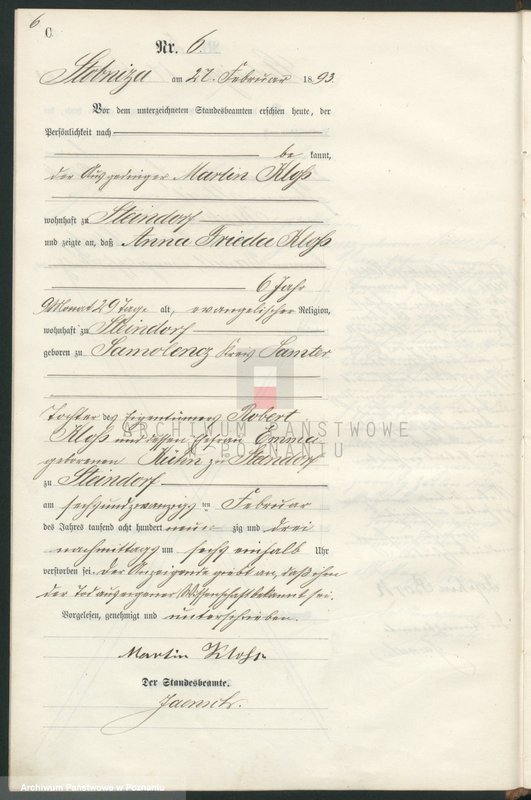 6
C.
Nr. 6.
Stobniza am 27. Februar 1893.
Vor dem unterzeichneten Standesbeamten erschien heute, der
Persönlichkeit nach
be kannt,
der Ausgedinger Martin Kloß
wohnhaft zu Steindorf
und zeigte an, daß Anna Frieda Kloß
6 Jahr
9 Monat 29 Tage alt, evangelischer Religion,
wohnhaft zu Steindorf
geboren zu Samolencz Kreis Samter
Tochter des Eigentümers Robert
Kloß und dessen Ehefrau Emma
geborenen Kühn zu Steindorf
zu Steindorf
am sechsundzwanzigsten Februar
des Jahres tausend acht hundert neunzig und drei
nachmittags um sechs einhalb Uhr
verstorben sei. Der Anzeigende giebt an, daß ihm
der Tod aus eigener Wissenschaft bekannt sei.
Vorgelesen, genehmigt und unterschrieben.
Martin Klohs
Der Standesbeamte.
Jaensch.
ARCHIWUM PAŃSTWOWE
W POZNANIU
Archiwum Państwowe w Poznaniu